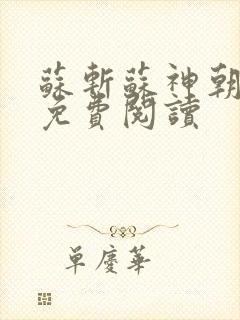 蘇斬蘇神朝
免費閱讀
單慶華